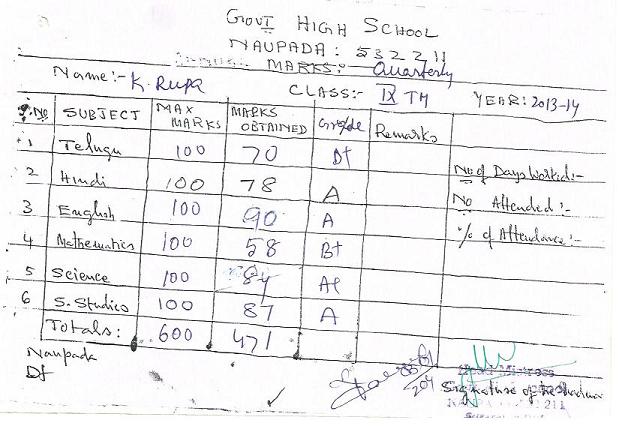 GOVT HIGH SCHOOL
NAUPADA: 532211
MARKS:- Quarterly
Name:- K. Rupa CLASS:- IX TH YEAR: 2013-14
S.No SUBJECT MAX MARKS MARKS OBTAINED Grade Remarks
1 Telugu 100 70 B+
2 Hindi 100 78 A
3 English 100 90 A
4 Mathematics 100 58 B+
5 Science 100 84
6 S. Studies 100 87 A
Totals: 600 471
No of Days Worked:-
No Attended:-
% of Attendance:-
Naupada
Dt
Signature of the